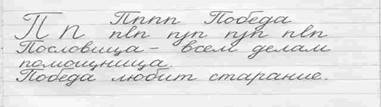 Пппп Победа
П п пвп пуп пјп пвп
Пословица - всем делам
помощница.
Победа любит старание.